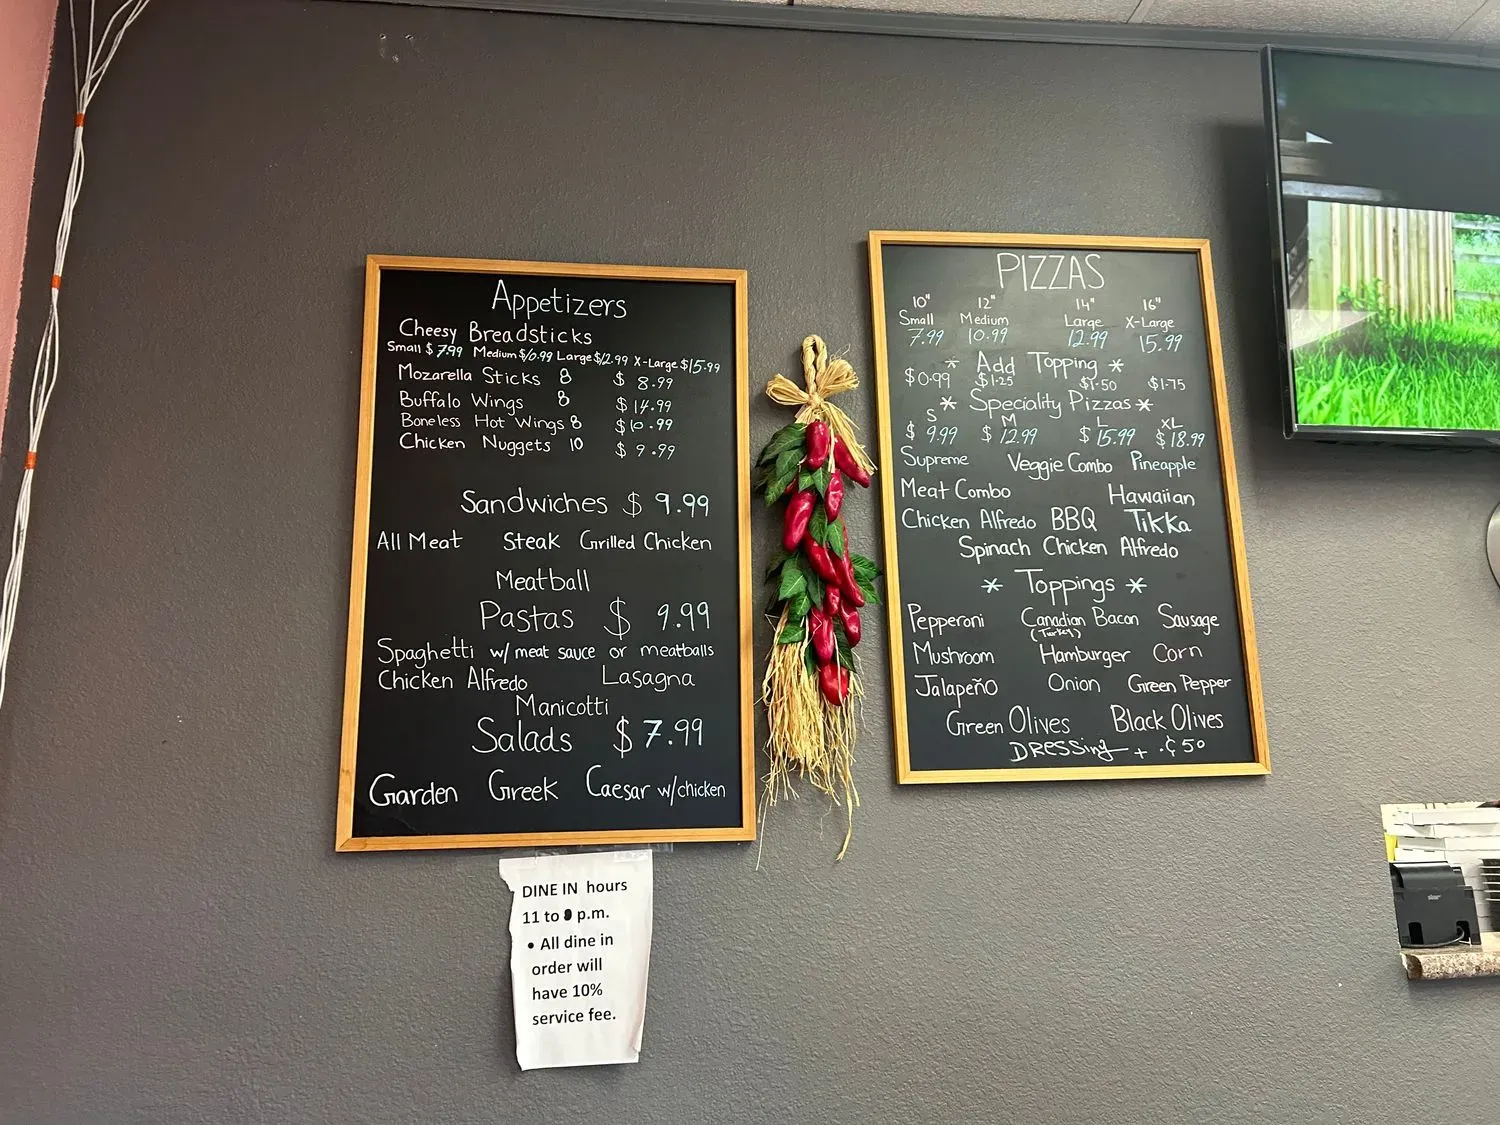 Appetizers
Cheesy Breadsticks
Small $7.99 Medium $10.99 Large $12.99 X-Large $15.99
Mozarella Sticks 8 $ 8.99
Buffalo Wings 8 $ 14.99
Boneless Hot Wings 8 $10.99
Chicken Nuggets 10 $ 9.99
Sandwiches $ 9.99
All Meat Steak Grilled Chicken
Meatball
Pastas $ 9.99
Spaghetti w/ meat sauce or meatballs
Chicken Alfredo Lasagna
Manicotti
Salads $7.99
Garden Greek Caesar w/chicken
DINE IN hours
11 to p.m.
• All dine in
order will
have 10%
service fee.
PIZZAS
10" 12" 14" 16"
Small Medium Large X-Large
7.99 10.99 12.99 15.99
* Add Topping *
$0.99 $1.25 $1.50 $1.75
* Speciality Pizzas *
S M L XL
$ 9.99 $ 12.99 $ 15.99 $ 18.99
Supreme Veggie Combo Pineapple
Meat Combo Hawaiian
Chicken Alfredo BBQ Tikka
Spinach Chicken Alfredo
* Toppings *
Pepperoni Canadian Bacon Sausage
(Turkey)
Mushroom Hamburger Corn
Jalapeño Onion Green Pepper
Green Olives Black Olives
DRESSing + .¢50